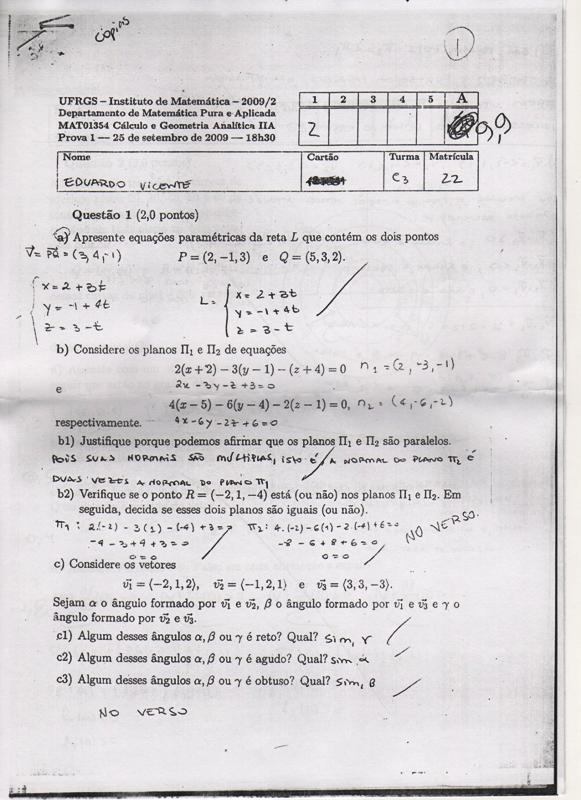 copias
1
UFRGS – Instituto de Matemática – 2009/2
Departamento de Matemática Pura e Aplicada
MAT01354 Cálculo e Geometria Analítica IIA
Prova 1 — 25 de setembro de 2009 — 18h30
1 2 3 4 5 A
2 9,9
Nome Cartão Turma Matrícula
EDUARDO VICENTE C3 22
Questão 1 (2,0 pontos)
a) Apresente equações paramétricas da reta L que contém os dois pontos
V⃗ = PQ⃗ = (3,4,-1) P = (2, −1, 3) e Q = (5, 3, 2).
x = 2 + 3t L = x = 2 + 3t
y = -1 + 4t y = -1 + 4t
z = 3 - t z = 3 - t
b) Considere os planos Π1 e Π2 de equações
2(x + 2) − 3(y − 1) − (z + 4) = 0 n1 = (2, -3, -1)
e 2x - 3y - z + 3 = 0
4(x − 5) − 6(y − 4) − 2(z − 1) = 0, n2 = (4, -6, -2)
respectivamente. 4x - 6y - 2z + 6 = 0
b1) Justifique porque podemos afirmar que os planos Π1 e Π2 são paralelos.
POIS SUAS NORMAIS SÃO MÚLTIPLAS, ISTO É, A NORMAL DO PLANO Π2 É
DUAS VEZES A NORMAL DO PLANO Π1
b2) Verifique se o ponto R = (−2, 1, −4) está (ou não) nos planos Π1 e Π2. Em
seguida, decida se esses dois planos são iguais (ou não).
Π1: 2(-2) - 3(1) - (-4) + 3 = 0 Π2: 4.(-2) - 6(1) - 2.(-4) + 6 = 0 NO VERSO.
-4 - 3 + 4 + 3 = 0 -8 - 6 + 8 + 6 = 0
0 = 0 0 = 0
c) Considere os vetores
v⃗1 = ⟨−2, 1, 2⟩, v⃗2 = ⟨−1, 2, 1⟩ e v⃗3 = ⟨3, 3, −3⟩.
Sejam α o ângulo formado por v⃗1 e v⃗2, β o ângulo formado por v⃗1 e v⃗3 e γ o
ângulo formado por v⃗2 e v⃗3.
c1) Algum desses ângulos α, β ou γ é reto? Qual? Sim, γ
c2) Algum desses ângulos α, β ou γ é agudo? Qual? Sim, α
c3) Algum desses ângulos α, β ou γ é obtuso? Qual? Sim, β
NO VERSO